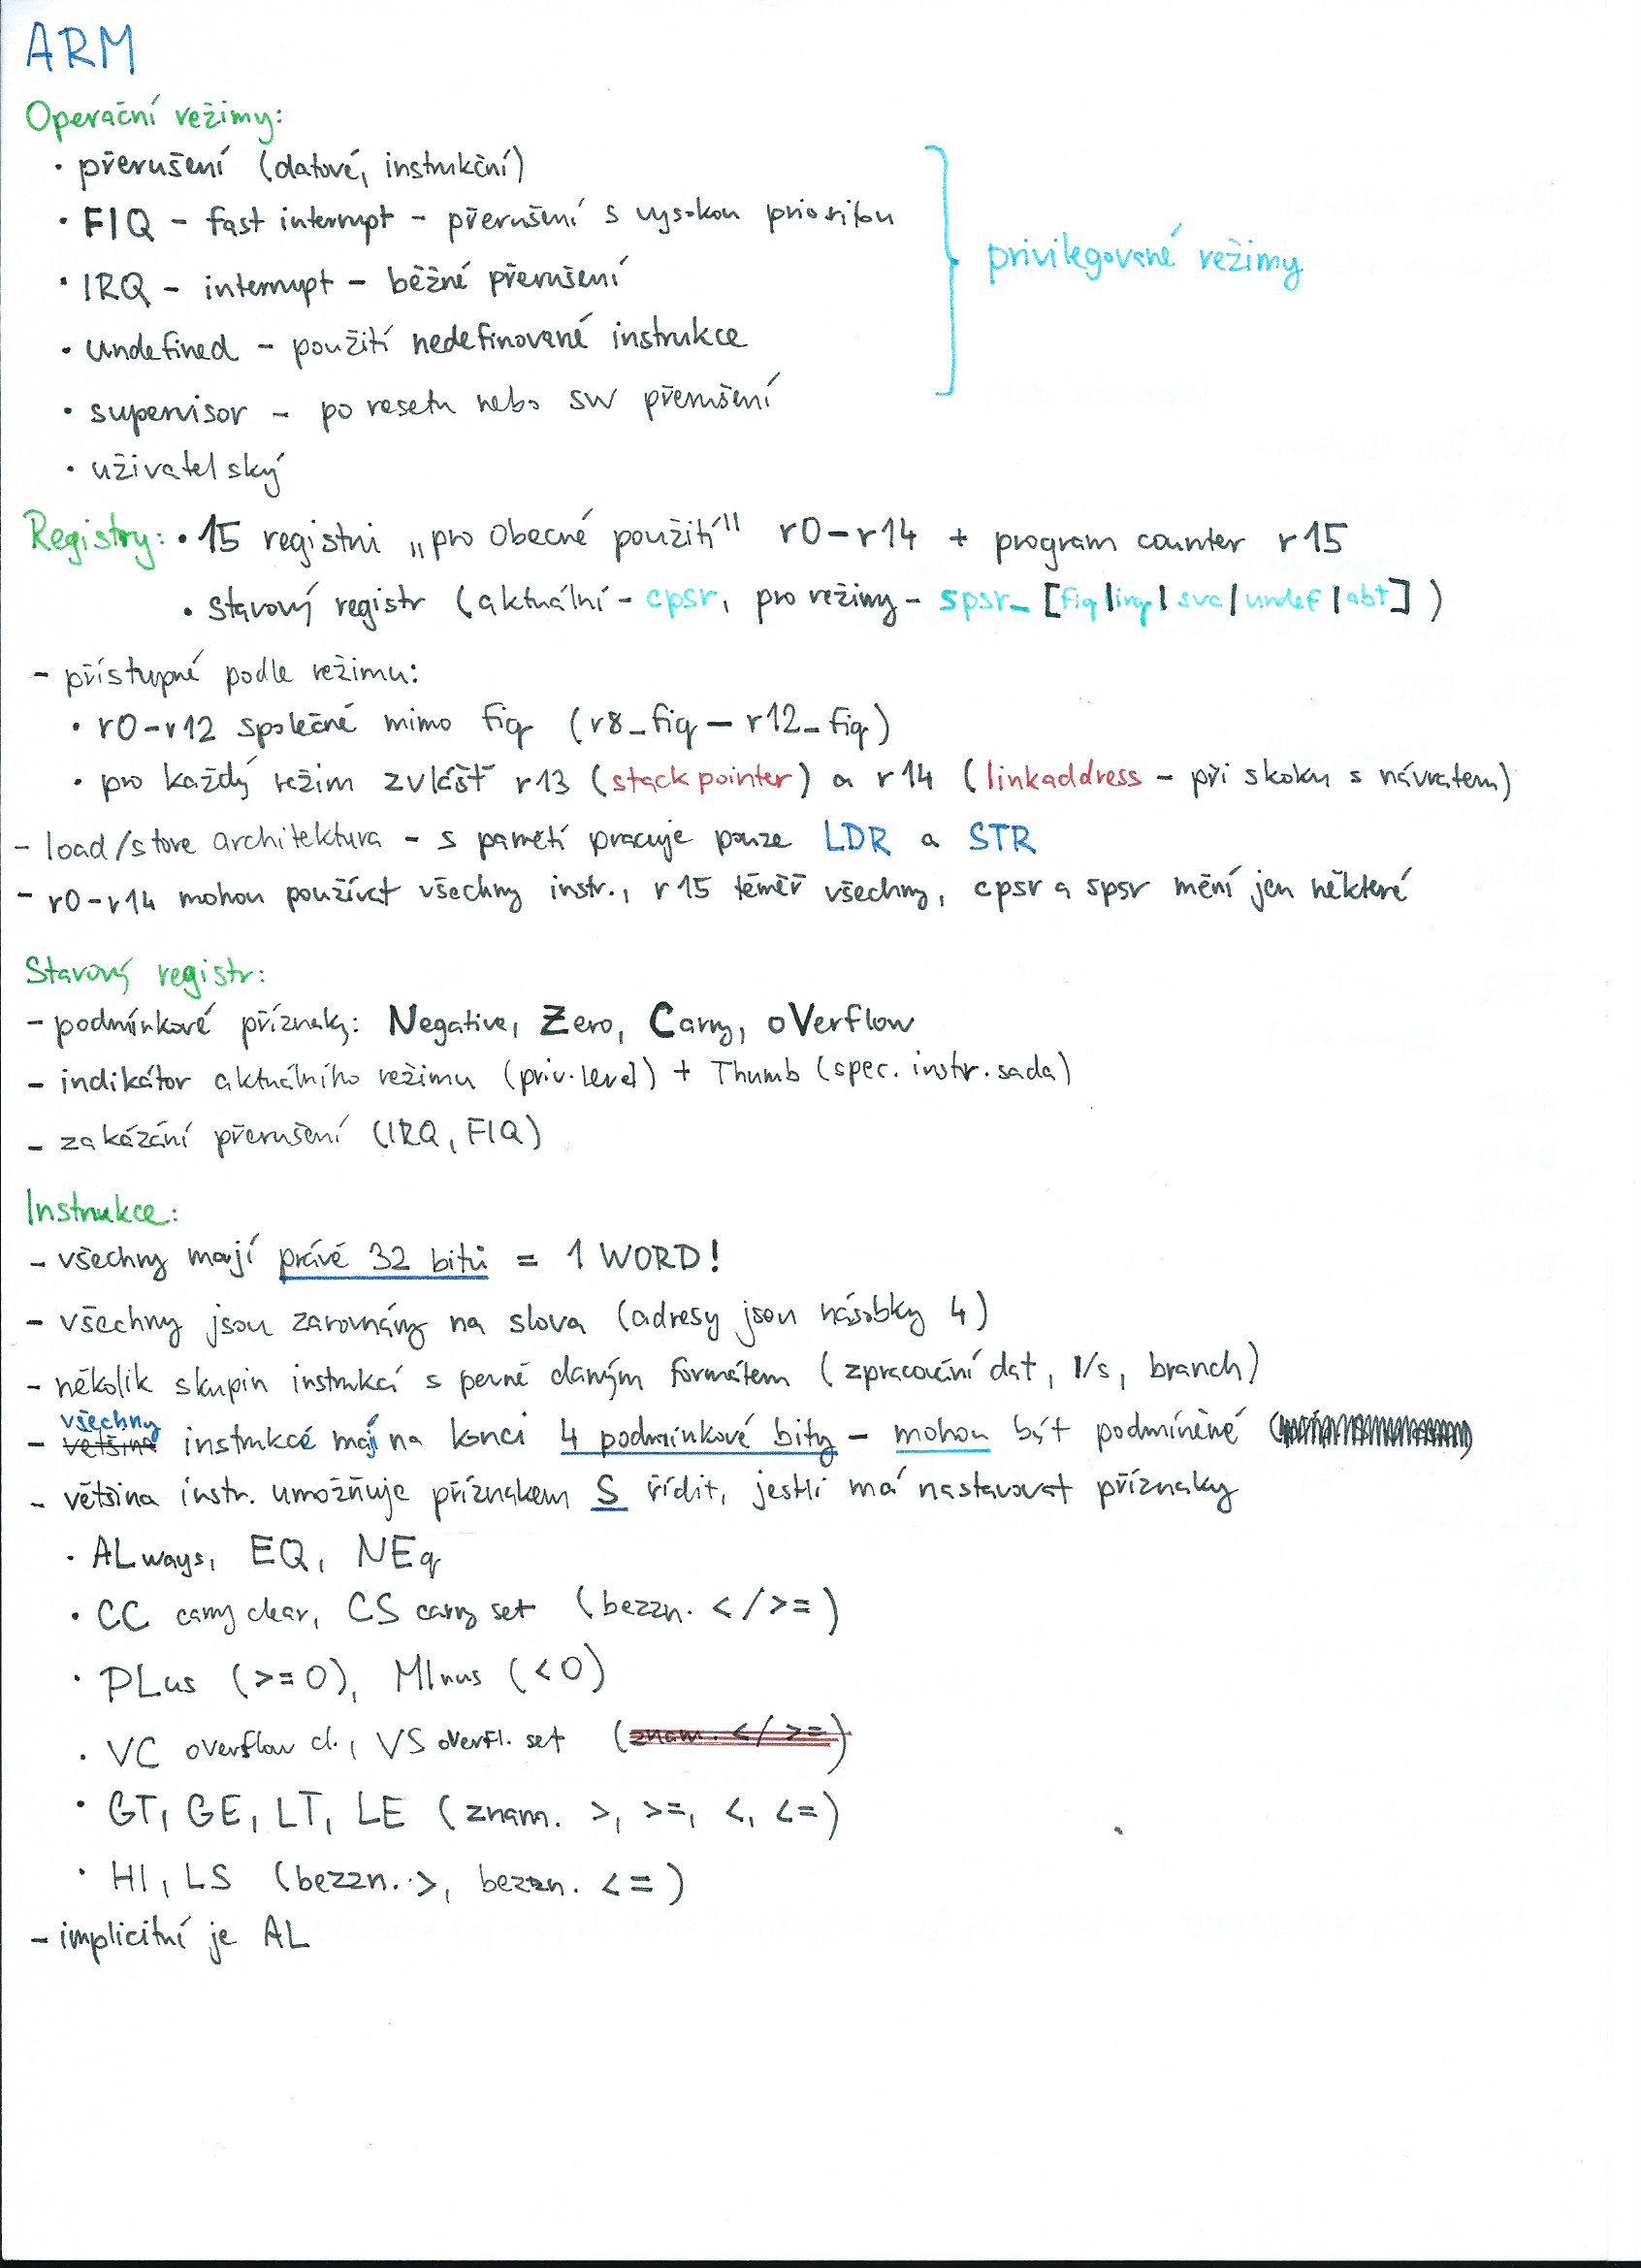 ARM
Operační režimy:
• přerušení (datové, instrukční)
• FIQ – fast interrupt – přerušení s vysokou prioritou
privilegované režimy
• IRQ – interrupt – běžné přerušení
• undefined – použití nedefinované instrukce
• supervisor – po resetu nebo SW přerušení
• uživatelský
Registry: • 15 registrů „pro obecné použití" r0–r14 + program counter r15
• stavový registr (aktuální – cpsr, pro režimy – spsr_[fiq|irq|svc|undef|abt])
– přístupné podle režimu:
• r0–r12 společné mimo fiq (r8_fiq – r12_fiq)
• pro každý režim zvlášť r13 (stack pointer) a r14 (linkaddress – při skoku s návratem)
– load/store architektura – s pamětí pracuje pouze LDR a STR
– r0–r14 mohou používat všechny instr., r15 téměř všechny, cpsr a spsr mění jen některé
Stavový registr:
– podmínkové příznaky: Negative, Zero, Carry, oVerflow
– indikátor aktuálního režimu (priv. level) + Thumb (spec. instr. sada)
– zakázání přerušení (IRQ, FIQ)
Instrukce:
– všechny mají právě 32 bitů = 1 WORD!
– všechny jsou zarovnány na slova (adresy jsou násobky 4)
– několik skupin instrukcí s pevně daným formátem (zpracování dat, l/s, branch)
všechny
– většina instrukcé mají na konci 4 podmínkové bity – mohou být podmíněné
– většina instr. umožňuje příznakem S řídit, jestli má nastavovat příznaky
• ALways, EQ, NEq
• CC carry clear, CS carry set (bezzn. </>=)
• PLus (>=0), MInus (<0)
• VC overflow cl., VS overfl. set (znam. </>=)
• GT, GE, LT, LE (znam. >, >=, <, <=)
• HI, LS (bezzn. >, bezzn. <=)
– implicitní je AL